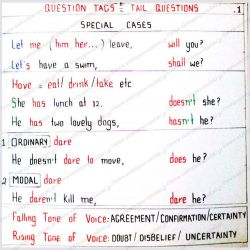 QUESTION TAGS = TAIL QUESTIONS
1
SPECIAL CASES
Let me (him, her...) leave, will you?
Let's have a swim, shall we?
Have = eat/ drink/ take etc
She has lunch at 12. doesn't she?
He has two lovely dogs, hasn't he?
1 ORDINARY dare
He doesn't dare to move, does he?
2 MODAL dare
He daren't kill me, dare he?
Falling Tone of Voice: AGREEMENT/CONFIRMATION/CERTAINTY
Rising Tone of Voice: DOUBT / DISBELIEF / UNCERTAINTY